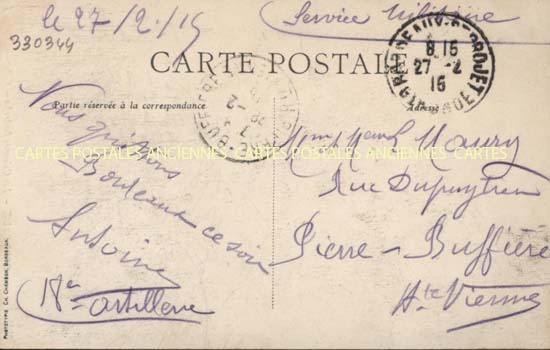 le 27/2.15
Service Militaire
330344
CARTE POSTALE
8.15
27-2
15
Partie réservée à la correspondance
Adresse
Nous quittons
Bordeaux ce soir
Antoine
18e artillerie
Maury
Rue Dupuytren
Pierre-Buffière
Hte Vienne
CARTES POSTALES ANCIENNES CARTES POSTALES ANCIENNES CARTES POSTALES ANCIENNES CARTES
PHOTOTYPIE CH. CHAMBON, BORDEAUX